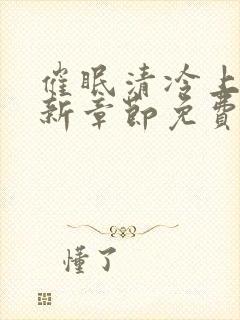 催眠清冷上
新章节免费
懂了